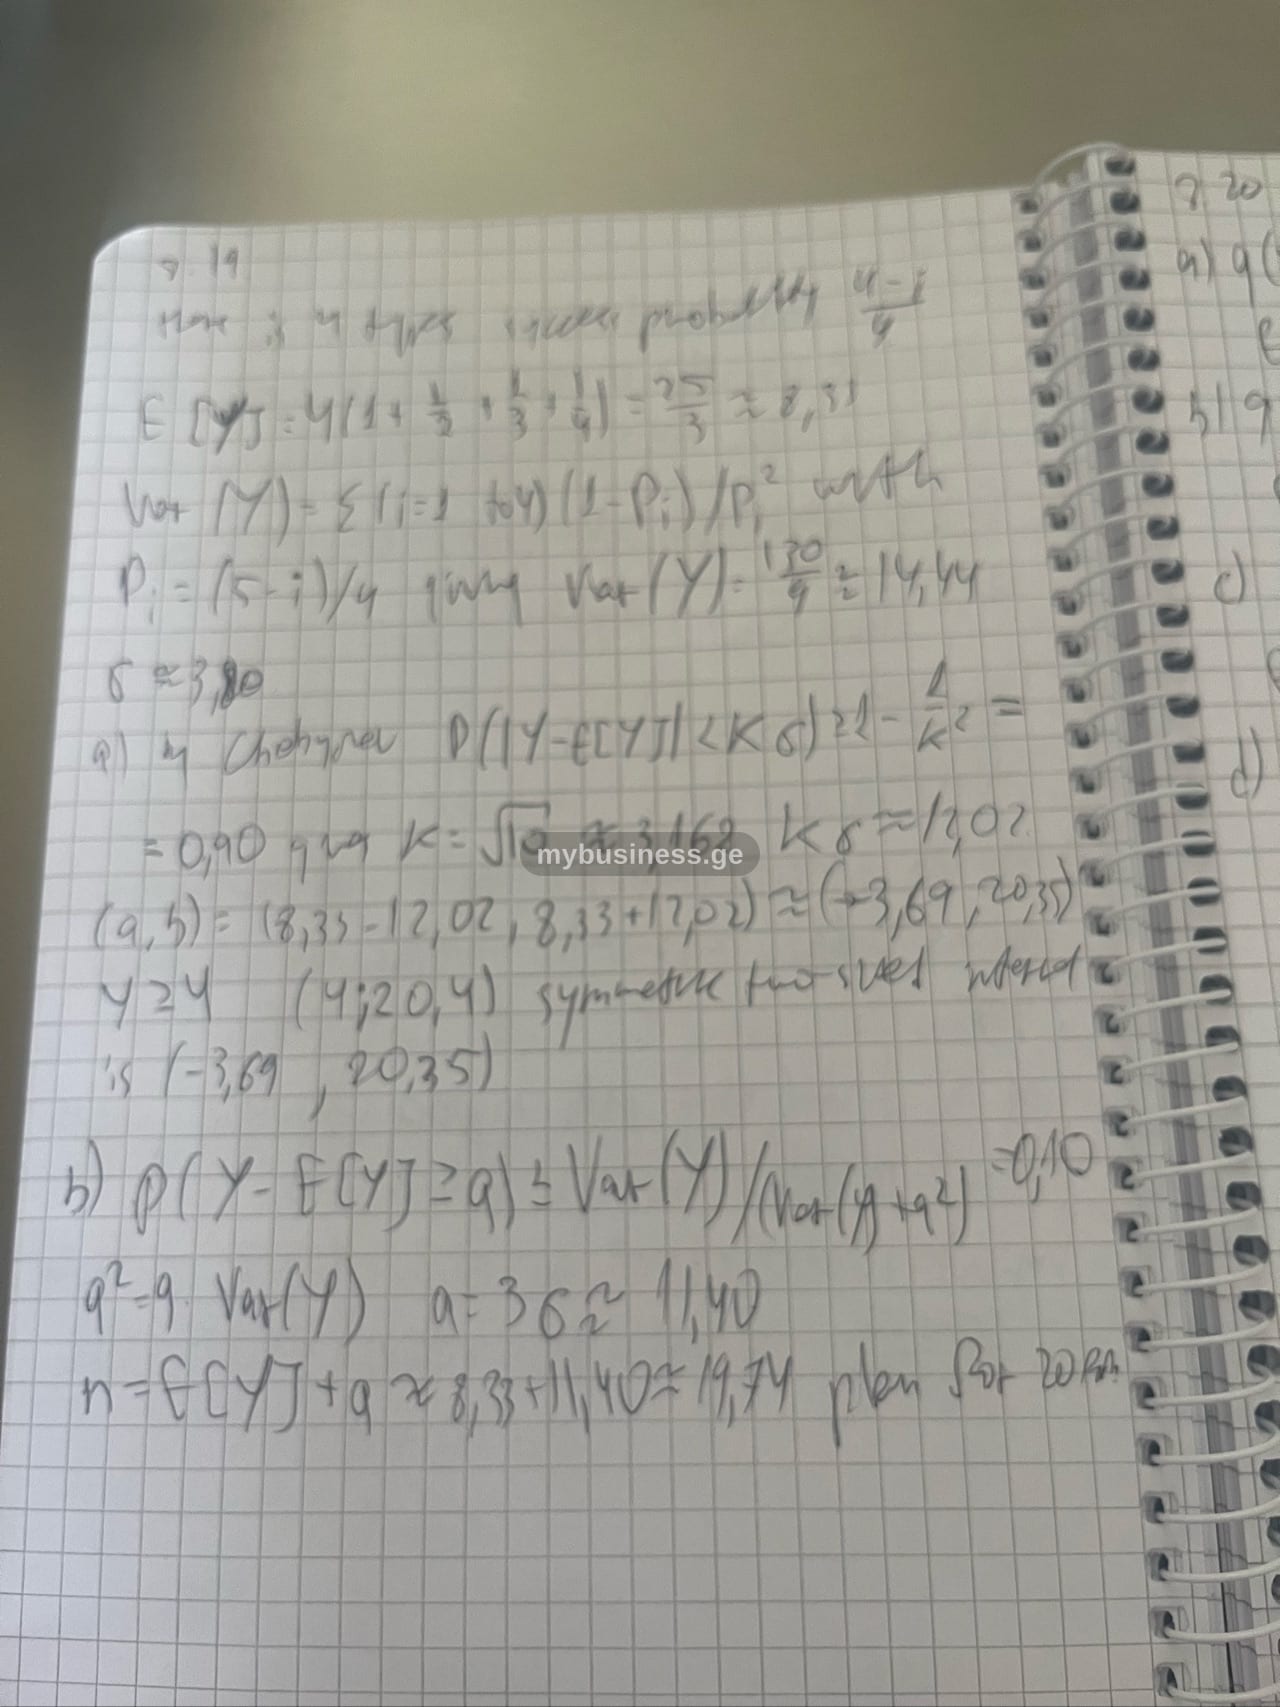 7.19
probability 4-i/4
E[Y] = 4(1+ 1/2 + 1/3 + 1/4) = 25/3 ≈ 8,33
Var(Y) = Σ(i=1 to 4) (1-Pi)/Pi² with
Pi = (5-i)/4 giving Var(Y) = 130/9 ≈ 14,44
σ ≈ 3,80
a) by Chebyshev P(|Y-E[Y]| < Kσ) ≥ 1 - 1/K² =
= 0,90 K = √10 ≈ 3,162 Kσ ≈ 12,02
mybusiness.ge
(a,b) = (8,33-12,02, 8,33+12,02) ≈ (-3,69, 20,35)
Y≥4 (4;20,4) symmetric two-sided interval
is (-3,69, 20,35)
b) P(Y - E[Y] ≥ a) ≤ Var(Y)/(Var(Y)+a²) =0,10
a²=9 Var(Y) a=3σ ≈ 11,40
n = E[Y]+a ≈ 8,33+11,40 ≈ 19,74 plan for 20
7.20
a)
b)
c)
d)